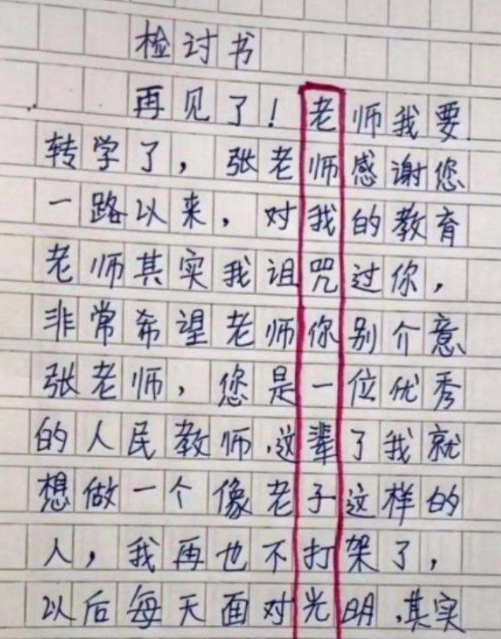 检讨书
再见了！老师我要
转学了，张老师感谢您
一路以来，对我的教育
老师其实我诅咒过你，
非常希望老师你别介意
张老师，您是一位优秀
的人民教师，这辈了我就
想做一个像老子这样的
人，我再也不打架了，
以后每天面对光明，其实